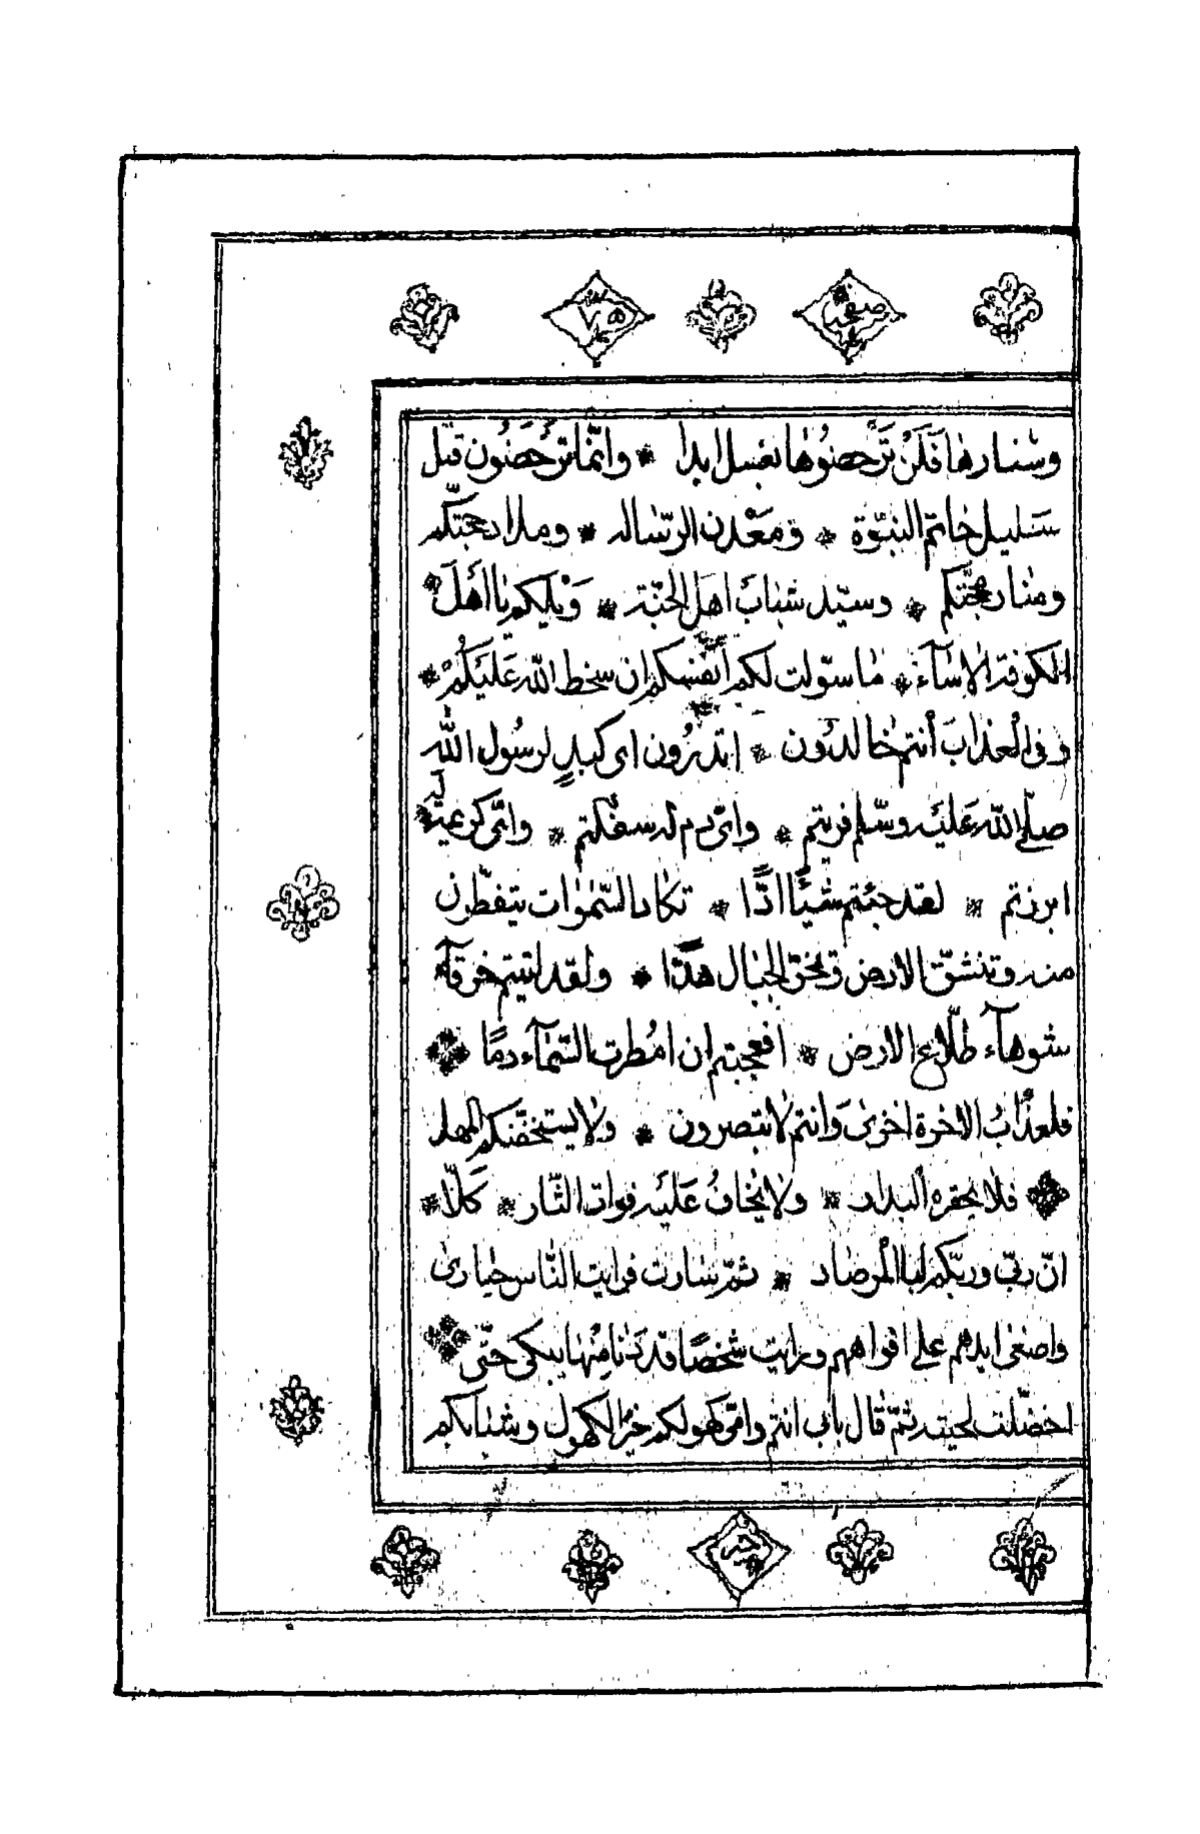 صفحة ٧٥
وشنارها فلن ترحضوها بغسل ابدا * وانّما ترحضون قتل
سليل خاتم النبوّة * ومعدن الرّسالہ * وملاذ حجتكم
ومنار محجّتكم * وسيّد شباب اهل الجنّة * ويلكم يا أهل *
الكوفة الا سآء * ما سوّلت لكم انفسكم ان سخط اللّه عليكم *
وفى العذاب أنتم خالدون * اتدرون اى كبدٍ لرسول اللّه
صلّى اللّه عليه وسلّم فريتم * واىّ دم له سفكتم * واىّ كريمة له
ابرزتم * لقد جئتم شيئًا ادًّا * تكاد السّموات يتفطّرن
منه وتنشقّ الارض وتخرّ الجبال هدًّا * ولقد اتيتم خرقآء
شوهآء طلاع الارض * افعجبتم ان امطرت السّمآء دمًا *
فلعذاب الاخرة اخزى وانتم لا تبصرون * ولا يستخفّنكم المهل
* فلا يحقره البدار * ولا يخاف عليه فوات الثّار * كلّا *
انّ ربّى وربّكم لبا المرصاد * ثمّ سارت فرايت النّاس حيارى
واضعى ايديهم على افواههم ورايت شخصًا قد دنا منها يبكى حتّى *
اخضلّت لحيته ثمّ قال بابى انتم وامّى كهولكم خير الكهول وشبابكم
خير